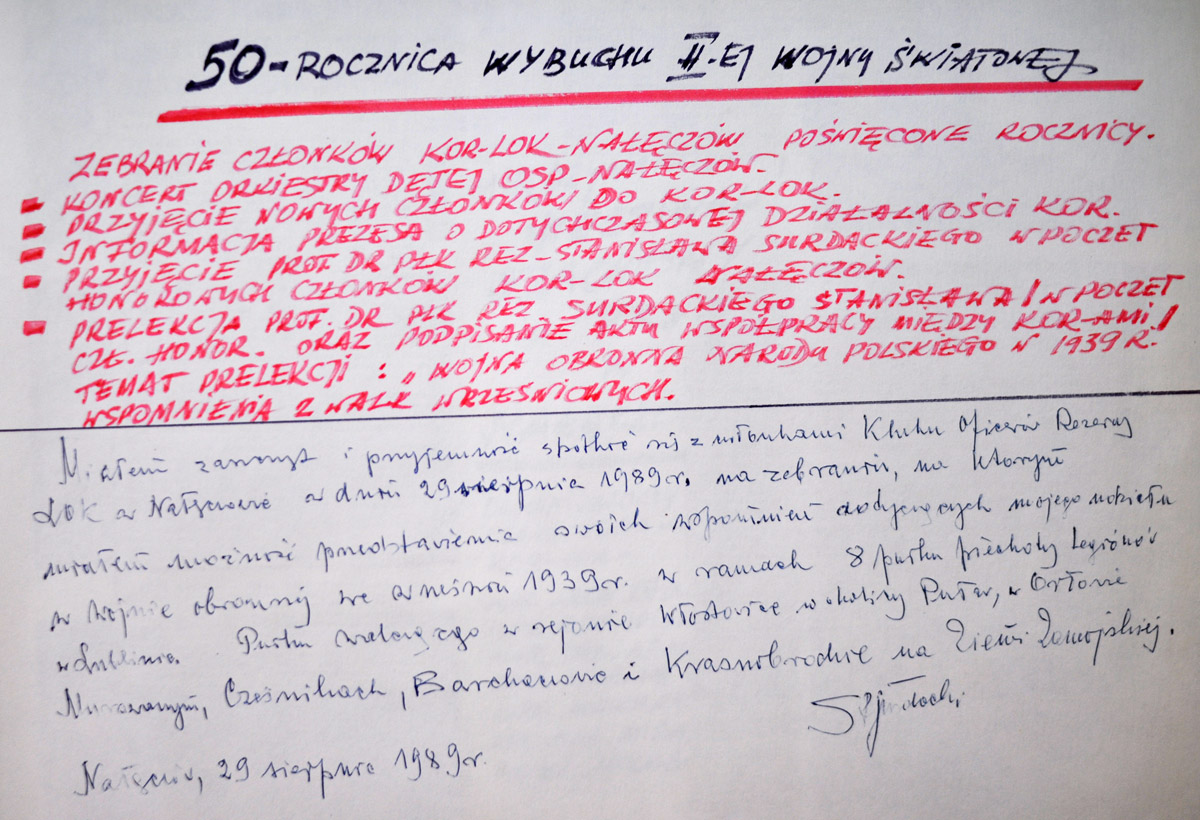 50-ROCZNICA WYBUCHU II-EJ WOJNY ŚWIATOWEJ
ZEBRANIE CZŁONKÓW KOR-LOK-NAŁĘCZÓW POŚWIĘCONE ROCZNICY.
- KONCERT ORKIESTRY DĘTEJ OSP-NAŁĘCZÓW.
- PRZYJĘCIE NOWYCH CZŁONKÓW DO KOR-LOK.
- INFORMACJA PREZESA O DOTYCHCZASOWEJ DZIAŁALNOŚCI KOR.
- PRZYJĘCIE PROF. DR PŁK REZ-STANISŁAWA SURDACKIEGO W POCZET
HONOROWYCH CZŁONKÓW KOR-LOK NAŁĘCZÓW.
- PRELEKCJA PROF. DR PŁK REZ SURDACKIEGO STANISŁAWA / W POCZET
CZŁ. HONOR. ORAZ PODPISANIE AKTU WSPÓŁPRACY MIĘDZY KOR-AMI /
TEMAT PRELEKCJI : „WOJNA OBRONNA NARODU POLSKIEGO W 1939 R.
WSPOMNIENIA Z WALK WRZEŚNIOWYCH.
Miałem zaszczyt i przyjemność spotkać się z członkami Klubu Oficerów Rezerwy
LOK w Nałęczowie w dniu 29 sierpnia 1989 r. na zebraniu, na którym
miałem możność przedstawienia swoich wspomnień dotyczących mojego udziału
w wojnie obronnej we wrześniu 1939 r. w ramach 8 pułku piechoty Legionów
w Lublinie. Pułku walczącego w rejonie Włostowice w okolicy Puław, w Orłowie
Murowanym, Cześnikach, Barchaczowie i Krasnobrodzie na Ziemi Zamojskiej.
Nałęczów, 29 sierpnia 1989 r.